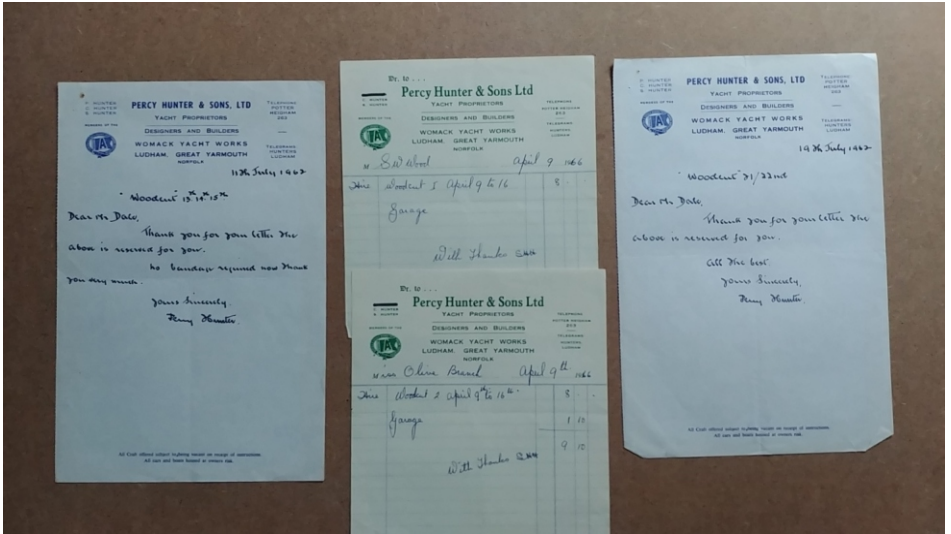 P. HUNTER
C. HUNTER
S. HUNTER
PERCY HUNTER & SONS, LTD
YACHT PROPRIETORS
DESIGNERS AND BUILDERS
WOMACK YACHT WORKS
LUDHAM, GREAT YARMOUTH
NORFOLK
TELEPHONE
POTTER
HEIGHAM
TELEGRAMS
HUNTERS
LUDHAM
11th July 1962
"Woodcut" 13th 14th 15th
Dear Mr Dale,
Thank you for your letter the
above is reserved for you.
No bandage required now thank
you very much.
Yours Sincerely,
Percy Hunter.
All Craft offered subject to being vacant on receipt of instructions.
All cars and boats housed at owners risk.
Dr. to ...
Percy Hunter & Sons Ltd
YACHT PROPRIETORS
DESIGNERS AND BUILDERS
WOMACK YACHT WORKS
LUDHAM, GREAT YARMOUTH
NORFOLK
TELEPHONE
POTTER HEIGHAM
TELEGRAMS
HUNTERS
LUDHAM
M S W Wood April 9 1966
Hire Woodcut 5 April 9 to 16 8 - -
Garage
With Thanks
Dr. to ...
Percy Hunter & Sons Ltd
YACHT PROPRIETORS
DESIGNERS AND BUILDERS
WOMACK YACHT WORKS
LUDHAM, GREAT YARMOUTH
NORFOLK
TELEPHONE
POTTER HEIGHAM
TELEGRAMS
HUNTERS
LUDHAM
Miss Olive Branch April 9th 1966
Hire Woodcut 2 April 9th to 16th 8 - -
Garage 1 10
9 10
With Thanks
P. HUNTER
C. HUNTER
S. HUNTER
PERCY HUNTER & SONS, LTD
YACHT PROPRIETORS
DESIGNERS AND BUILDERS
WOMACK YACHT WORKS
LUDHAM, GREAT YARMOUTH
NORFOLK
TELEPHONE
POTTER
HEIGHAM
TELEGRAMS
HUNTERS
LUDHAM
19th July 1962
"Woodcut" 21/22nd
Dear Mr Dale,
Thank you for your letter the
above is reserved for you.
All the best.
Yours Sincerely,
Percy Hunter
All Craft offered subject to being vacant on receipt of instructions.
All cars and boats housed at owners risk.